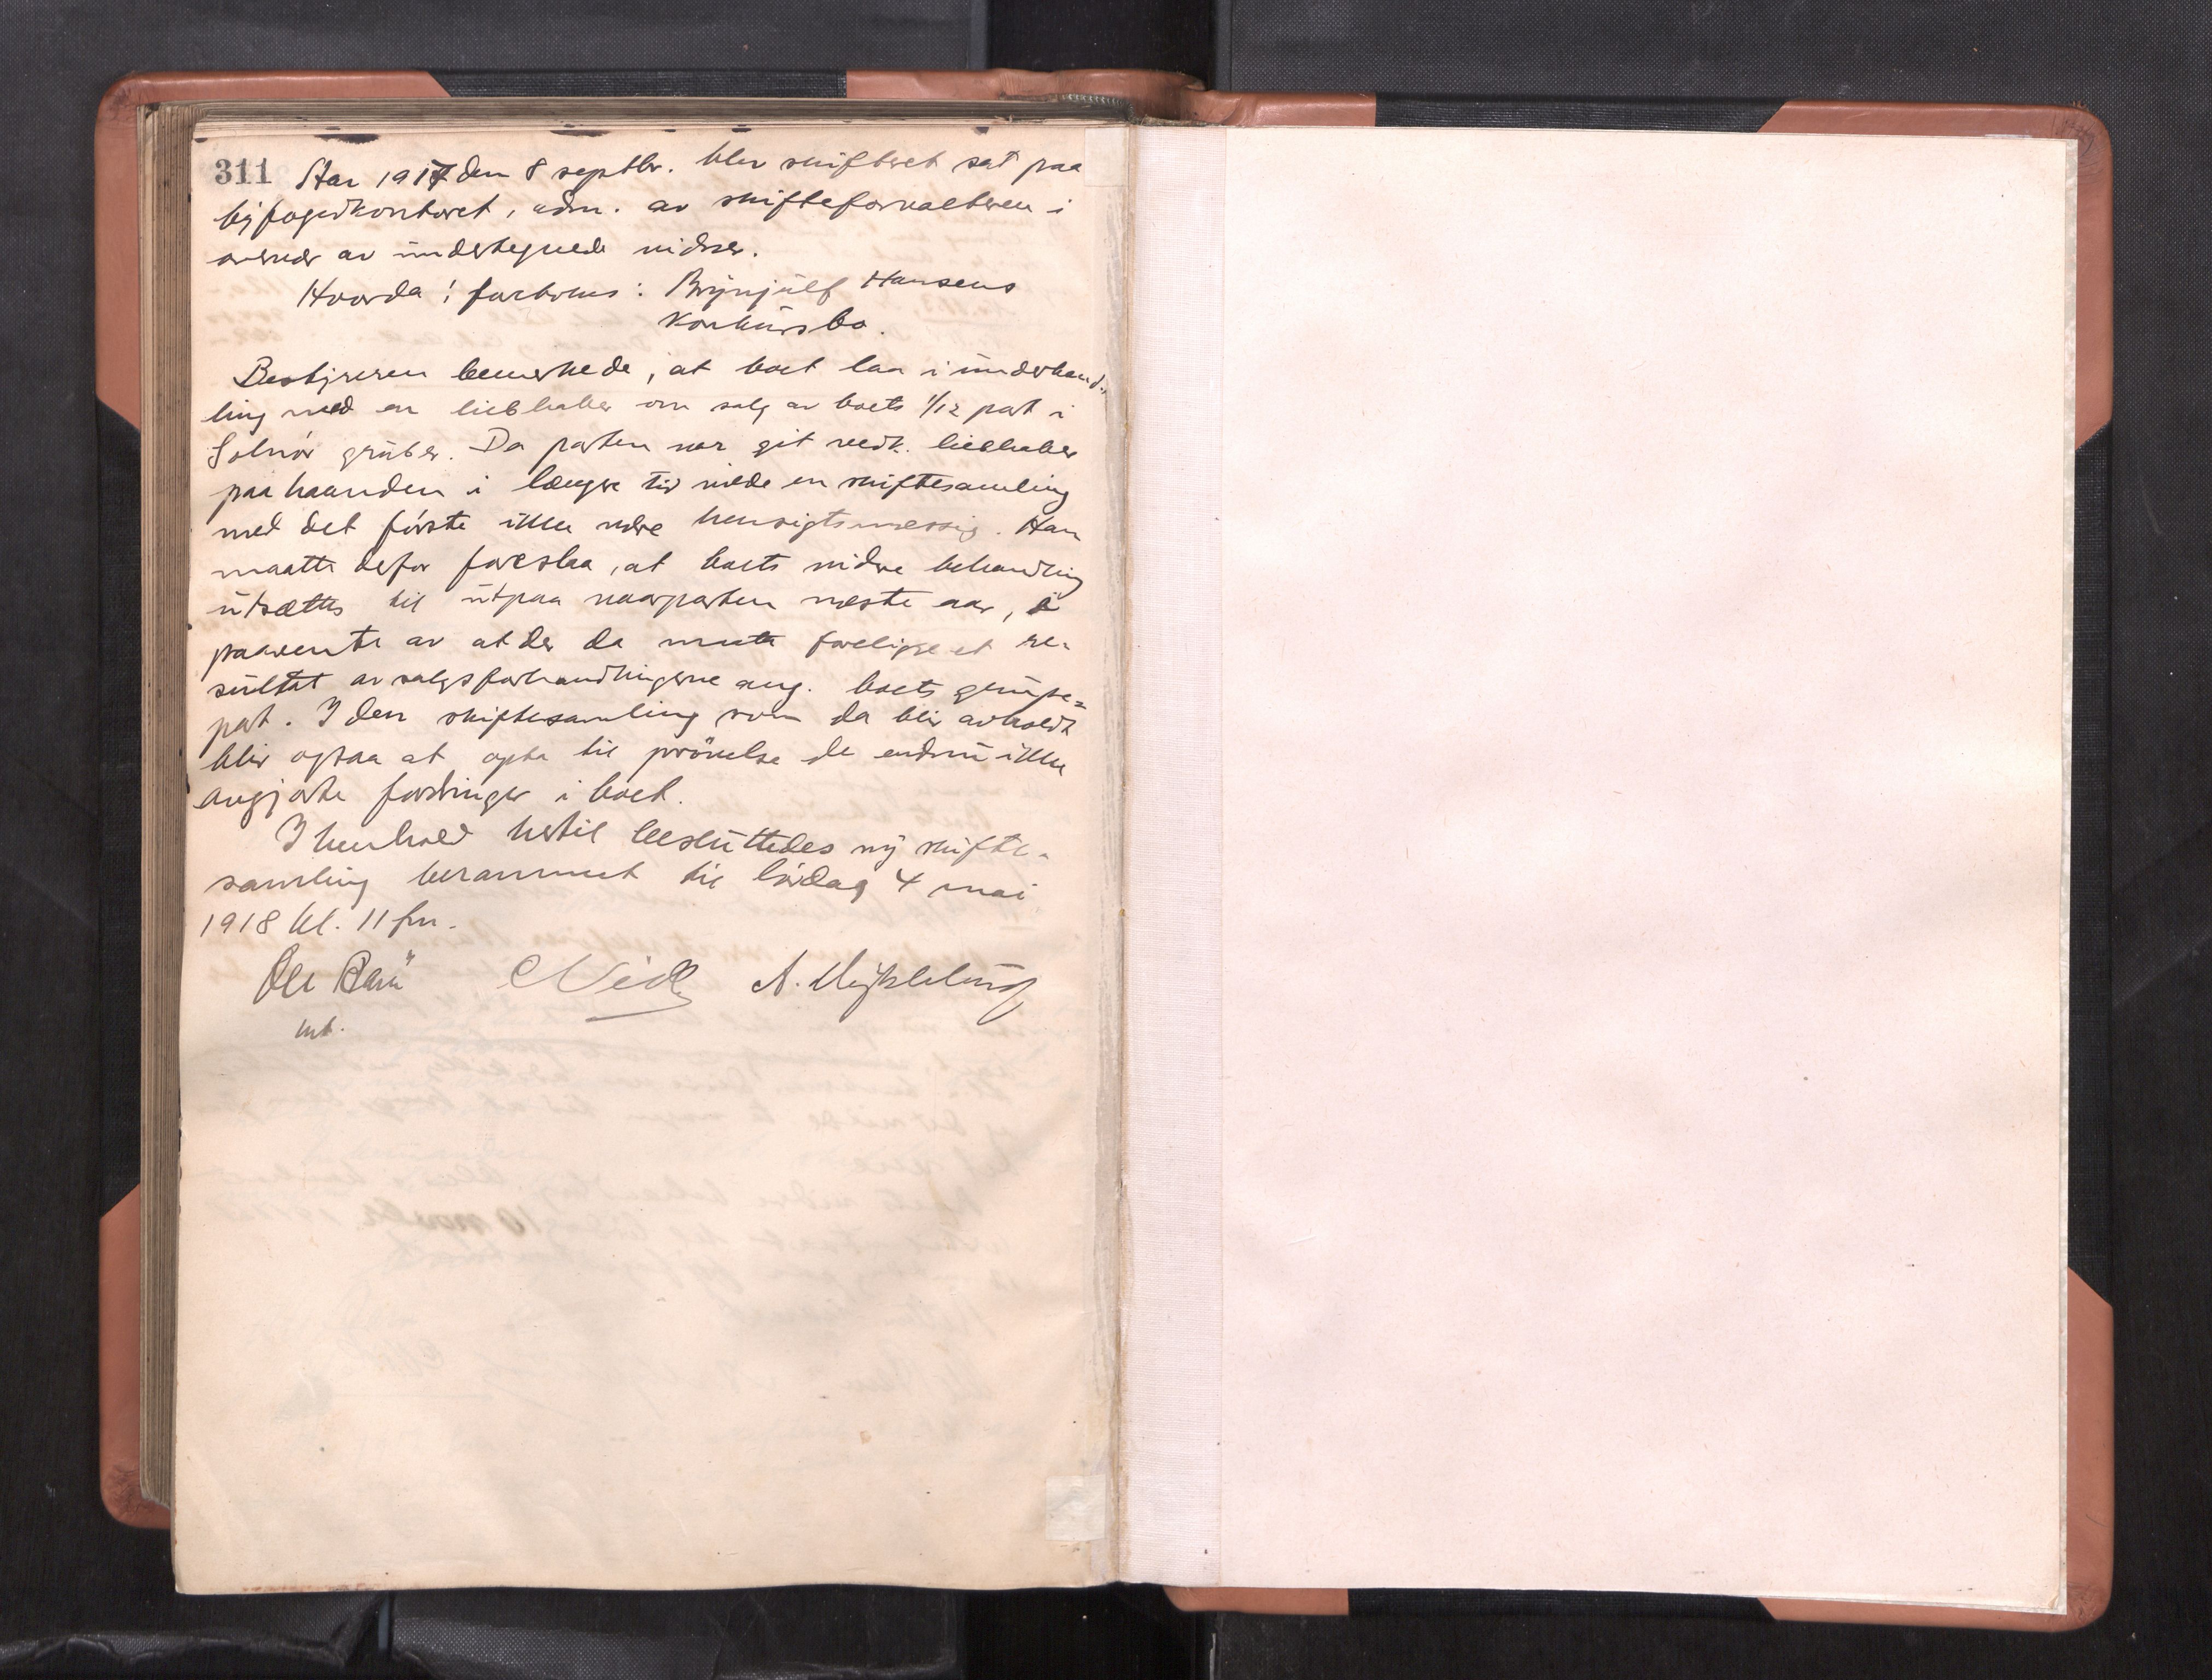 311 Aar 1917 den 8 septbr. blev skifteret sat paa
byfogedkontoret, adm. av skifteforvalteren i
overvær av undertegnede vidner.
Hvorda! foretoges: Brynjulf Hansens
Konkursbo.
Bestyreren bemerkede, at boet laa i underhand-
ling med en liebhaber om salg av boets 1/12 part i
Solnör gruber. Da parten var git vedk. liebhaber
paa haanden i længre tid vilde en skiftesamling
med det første ikke være hensigtsmessig. Han
maatte defor foreslaa, at boets videre behandling
utsættes til utpaa vaarparten næste aar, i
paavente av at der da maatte foreligge et re-
sultat av salgsforhandlingerne ang. boets grube-
part. I den skiftesamling som da blir avholdt
blir ogsaa at opta til prövelse de endnu ikke
avgjorte fordringer i boet.
I henhold hertil besluttedes ny skifte-
samling berammet til lördag 4 mai
1918 kl. 11 fm.
Ole
cst.